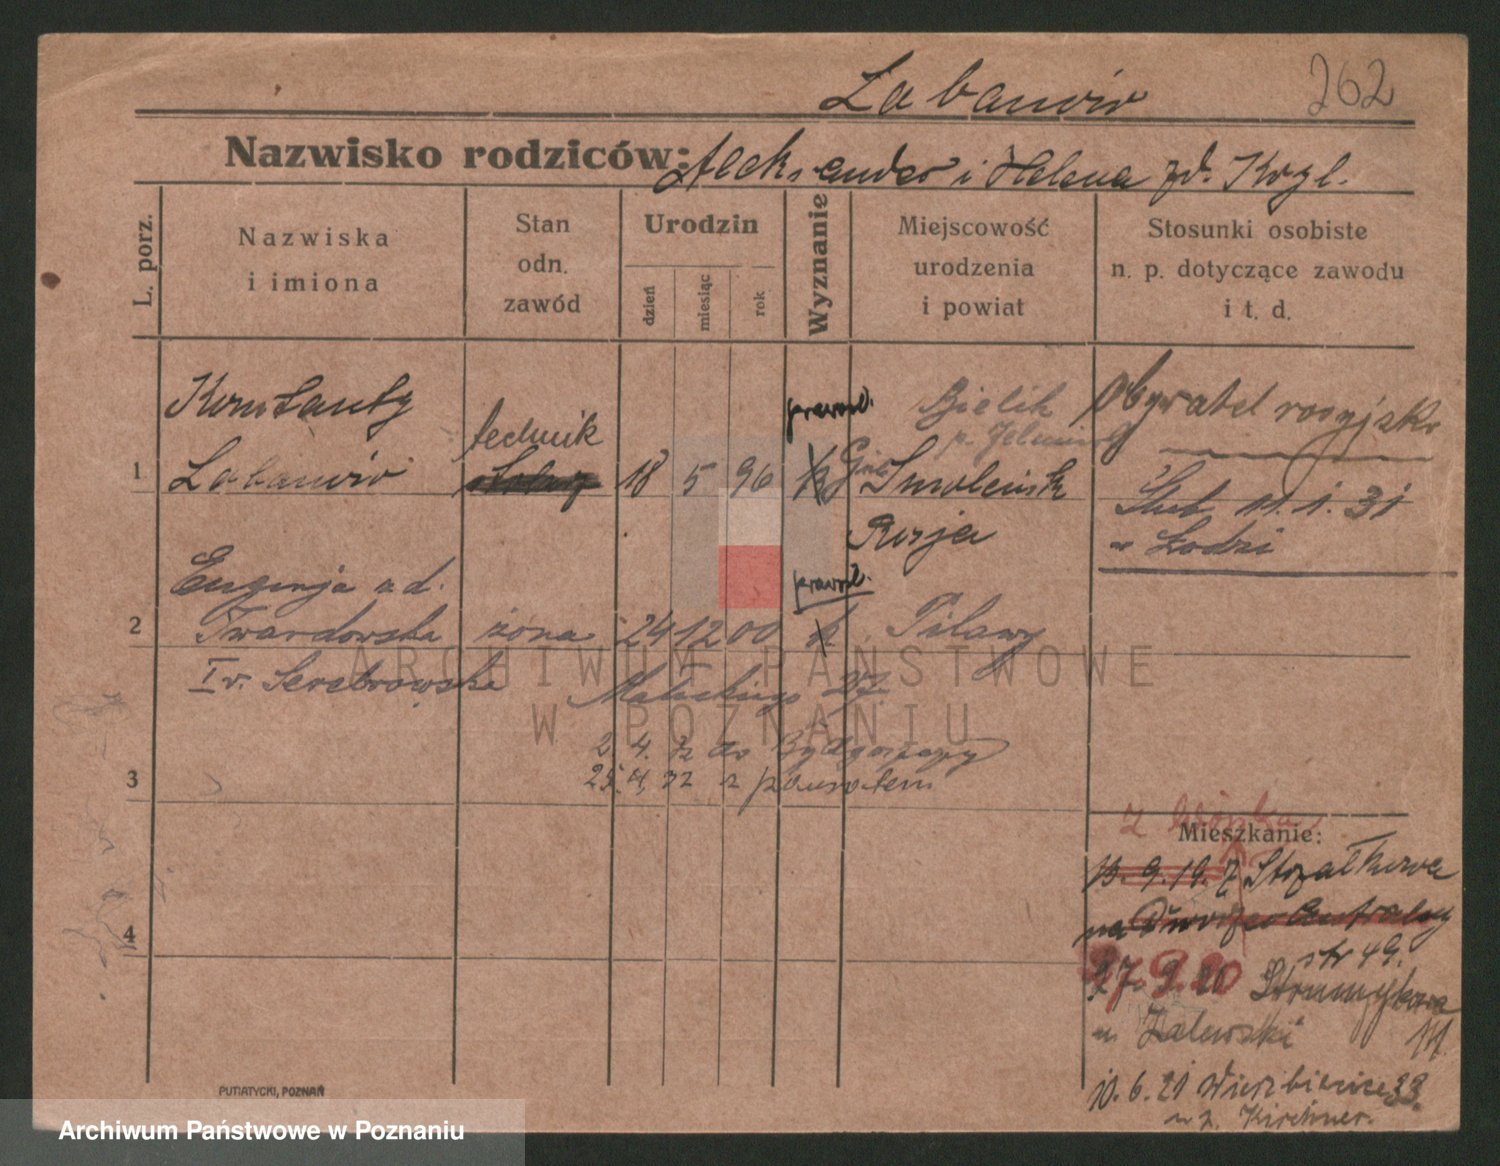 Labanow
262
Nazwisko rodziców: Aleksander i Helena zd. Kozl.
L. porz.
Nazwiska
i imiona
Stan
odn.
zawód
Urodzin
dzień
miesiąc
rok
Wyznanie
Miejscowość
urodzenia
i powiat
Stosunki osobiste
n. p. dotyczące zawodu
i t. d.
1
Konstanty
Labanow
technik
18 5 96
prawosł.
Bielik
Smoleńsk
Rosja
Obywatel rosyjski
Ślub 11. 1. 31
w Łodzi
2
Eugenja z d.
Twardowska
I v. Serebrowska
żona
24 12 00
prawosł.
Pilawy
Małeckiego 27.
2 4. 32 do Bydgoszczy
25. 4. 32 z powrotem
3
4
Mieszkanie:
13. 9. 19. z Strzałkowa
na Dworzec Centralny
str 49.
27. 9. 20 Strumykowa
u. Zalewski 111
10. 6. 21 Wierzbięcice 33.
u. Kirchner.
PUTIATYCKI, POZNAŃ
ARCHIWUM PAŃSTWOWE
W POZNANIU
Archiwum Państwowe w Poznaniu